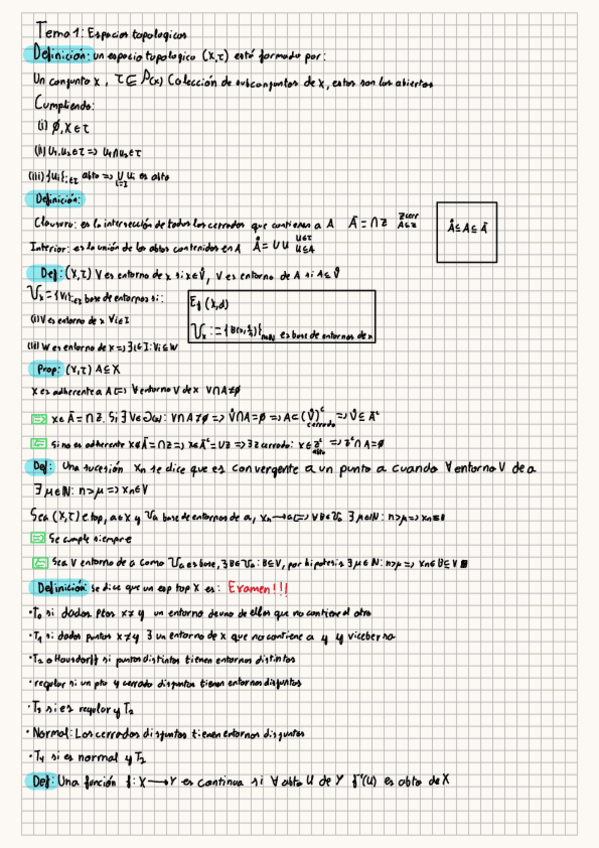 Tema 1: Espacios topologicos
Definición: un espacio topologico (X,τ) está formado por:
Un conjunto x, τ ⊆ P(x) Colección de subconjuntos de x, estos son los abiertos
Cumpliendo:
(i) ∅, X ∈ τ
(ii) U₁,U₂ ∈ τ => U₁∩U₂ ∈ τ
(iii) {Ui}i∈I abto => ∪ Ui es abto
i∈I
Definición:
Clausura: es la intersección de todos los cerrados que contienen a A Ā = ∩Z Z cerr A⊆Z
Å ⊆ A ⊆ Ā
Interior: es la unión de los abtos contenidos en A Å = ∪U U∈τ U⊆A
Def: (X,τ) V es entorno de x si x∈V̊, V es entorno de A si A⊆V̊
𝒱x = {Vi}i∈I base de entornos si:
(i) V es entorno de x ∀i∈I
(ii) W es entorno de x => ∃i∈I: Vi⊆W
Ej (X,d)
𝒱x := {B(x,1/n)}n∈ℕ es base de entornos de x
Prop: (X,τ) A⊆X
x es adherente a A <=> ∀ entorno V de x V∩A≠∅
=> x∈Ā = ∩Z. Si ∃ V∈ : V∩A≠∅ => V̊∩A=∅ => A⊂(V̊)ᶜ => V̊⊆Āᶜ
cerrado
<= Si no es adherente x∉Ā=∩Z => x∈Āᶜ=∪Zᶜ => ∃Z cerrado: x∈Zᶜ => Zᶜ∩A=∅
abto
Def: Una sucesión xn se dice que es convergente a un punto a cuando ∀ entorno V de a
∃ μ∈ℕ: n>μ => xn∈V
Sea (X,τ) e top, a∈X y 𝒱a base de entornos de a, xn→a <=> ∀B∈𝒱a ∃ μ∈ℕ: n>μ => xn∈B
=> Se cumple siempre
<= Sea V entorno de a como 𝒱a es base, ∃B∈𝒱a: B⊆V, por hipotesis ∃ μ∈ℕ: n>μ => xn∈B⊆V ■
Definición: se dice que un esp top X es: Examen!!!
·T₀ si dados ptos x≠y un entorno de uno de ellos que no contiene al otro
·T₁ si dados puntos x≠y ∃ un entorno de x que no contiene a y y viceversa
·T₂ o Hausdorff si puntos distintos tienen entornos distintos
·regular si un pto y cerrado disjuntos tienen entornos disjuntos
·T₃ si es regular y T₂
·Normal: Los cerrados disjuntos tienen entornos disjuntos
·T₄ si es normal y T₂
Def: Una función f: X→Y es continua si ∀ abto U de Y f⁻¹(U) es abto de X